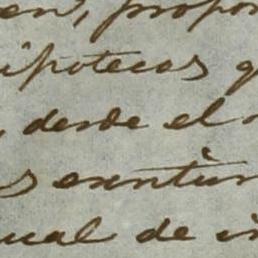 en, propon
ipotecas q
, desde el
s escritur
ual de in